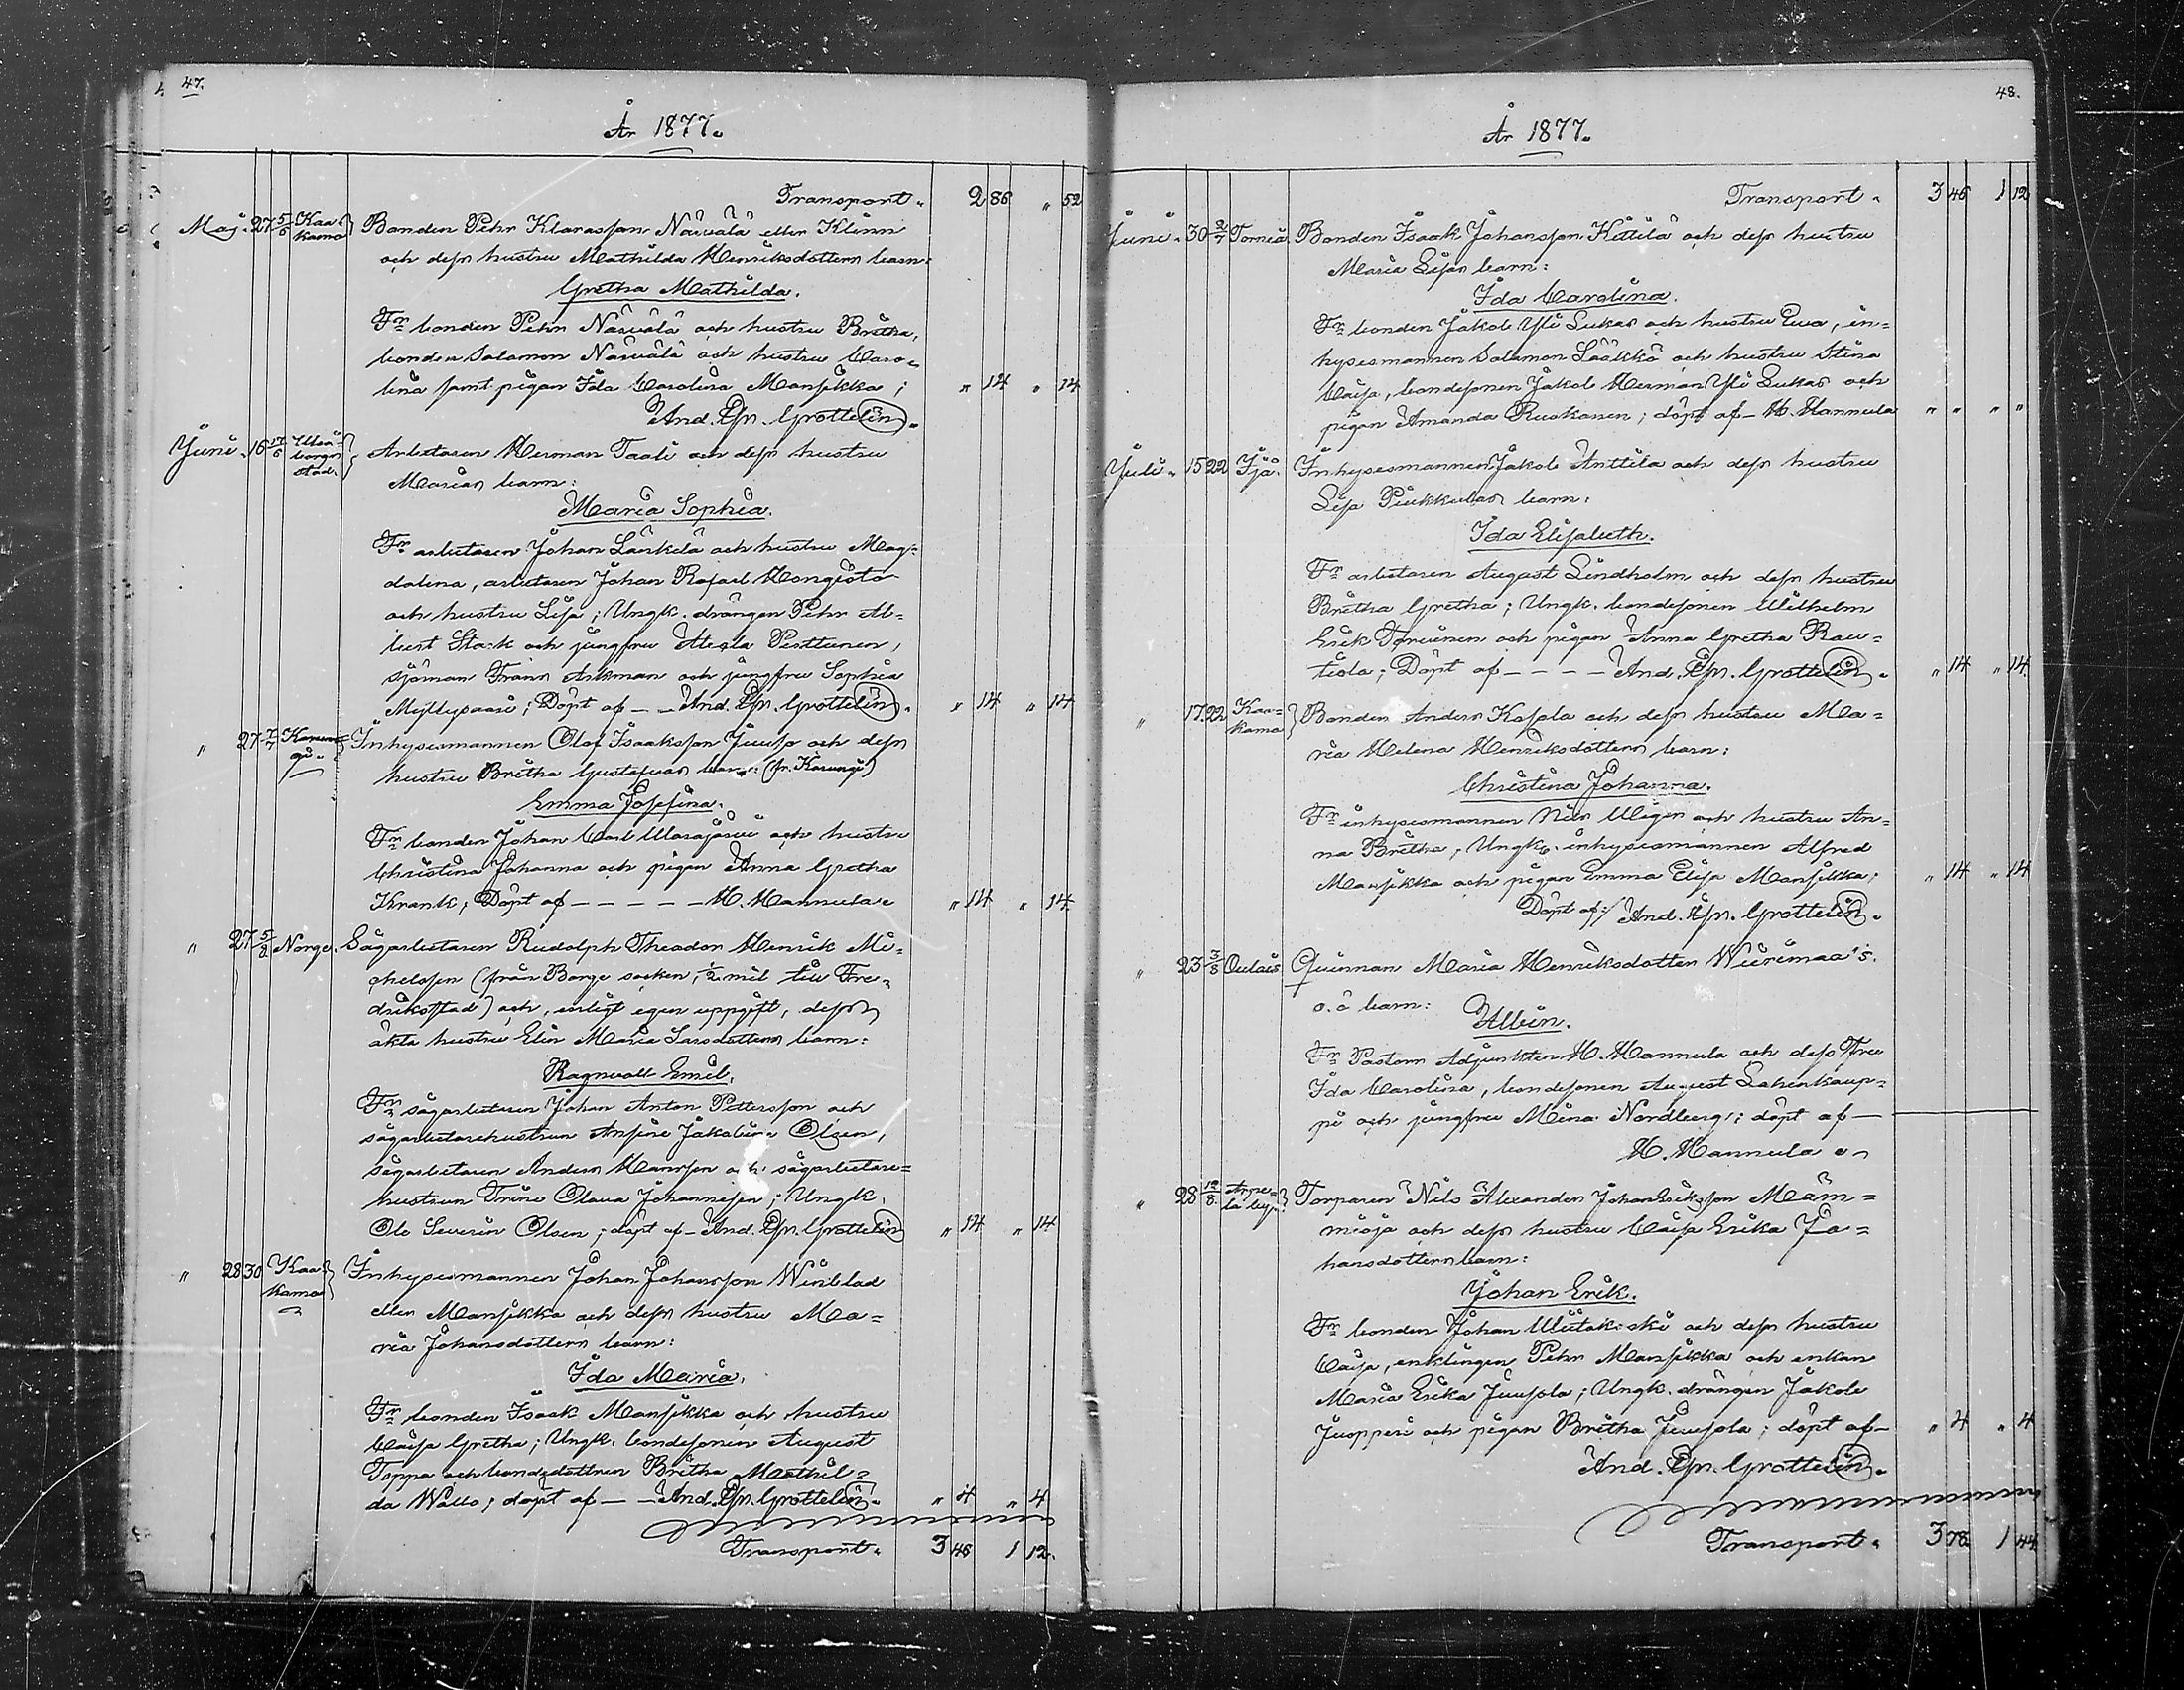 47.
År 1877.
Transport. 2 86 " 52
Maj. 27 5/6 Kaakamo Bonden Pehr Klarasson Näivälä eller Klinn
och dess hustru Mathilda Henriksdotters barn:
Gretha Mathilda.
Fr bonden Pehr Näivälä och hustru Britha,
bonden Salamon Näivälä och hustru Caro-
lina samt pigan Ida Carolina Mansikka; " 14 " 14
And. Joh. Grottelin.
Juni. 16 17/6 Uleåborgs stad. Arbetaren Herman Taali och dess hustru
Marias barn:
Maria Sophia.
Fr arbetaren Johan Länkelä och hustru Mag-
dalena, arbetaren Johan Rafael Hongisto
och hustru Lisa; Ungk. drängen Pehr Al-
bert Stark och jungfru Alexla Perttunen,
sjöman Frans Arkman och jungfru Sophia
Myllypaasi; Döpt af — — And. Joh. Grottelin. " 14 " 14
" 27 7/7 Karungi. Inhysesmannen Olof Isaaksson Juuso och dess
hustru Britha Gustafvas barn: (fr. Karungi)
Emma Josefina.
Fr bonden Johan Carl Marajärvi och hustru
Christina Johanna och pigan Anna Gretha
Krank; Döpt af — — — — — H. Hannula. " 14 " 14.
" 27 5/8 Norge. Sågarbetaren Rudolph Theodor Henrik Mi-
chelsson (från Borge socken, 1/2 mil till Fre-
drikstad) och, enligt egen uppgift, dess
äkta hustru Elin Maria Larsdotters barn:
Ragnvall Emil.
Fr sågarbetaren Johan Anton Pettersson och
sågarbetarehustrun Ansine Jakobine Olsen,
sågarbetaren Anders Hansson och sågarbetare-
hustrun Trine Olava Johannesen; Ungk.
Ole Severin Olsen; döpt af — And. Joh. Grottelin " 14 " 14
" 28 30 Kaakamo Inhysesmannen Johan Johansson Winblad
eller Mansikka och dess hustru Ma-
ria Johansdotters barn:
Ida Maria.
Fr bonden Isaak Mansikka och hustru
Caisa Gretha; Ungk. bondesonen August
Toppo och bondedottren Britha Mathil-
da Wallo; döpt af — — And. Joh. Grottelin. " 4 " 4
Transport. 3 46 1 12.
48.
År 1877.
Transport. 3 46 1 12
Juni. 30 2/7 Torneå. Bonden Isaak Johansson Kittilä och dess hustru
Maria Lisas barn:
Ida Carolina.
Fr bonden Jakob Yli Lukas och hustru Eva, in-
hysesmannen Salamon Lääkkö och hustru Stina
Caisa, bondesonen Jakob Herman Yli Lukas och
pigan Amanda Ruskanen; döpt af — H. Hannula " " " "
Juli. 15 22 Ijo. Inhysesmannen Jakob Anttila och dess hustru
Lisa Piukkulas barn:
Ida Elisabeth.
Fr arbetaren August Lindholm och dess hustru
Britha Gretha; Ungk. bondesonen Wilhelm
Erik Torvinen och pigan Anna Gretha Rau-
tiola; Döpt af — — — — And. Joh. Grottelin. " 14 " 14.
" 17. 22 Kaakama Bonden Anders Kassla och dess hustru Ma-
ria Helena Henriksdotters barn:
Christina Johanna.
Fr inhysesmannen Nils Wigen och hustru An-
na Britha; Ungk. inhysesmannen Alfred
Mansikka och pigan Emma Elisa Mansikka; " 14 " 14
Döpt af: And. Joh. Grottelin.
" 23 3/8 Oulais Qvinnan Maria Henriksdotter Wiirimaa's.
o. ä barn:
Albin.
Fr Pastors Adjunkten H. Hannula och dess Fru
Ida Carolina, bondesonen August Lahenkaup-
pi och jungfru Mina Nordberg; döpt af —
H. Hannula.
" 28 12/8. Arpela by. Torparen Nils Alexander Johan Eriksson Mäm-
mioja och dess hustru Caisa Erika Jo-
hansdotters barn:
Johan Erik.
Fr bonden Johan Uutakoski och dess hustru
Caisa, enklingen Pehr Mansikka och enkan
Maria Erika Juusola; Ungk. drängen Jakob
Juopperi och pigan Britha Juusola; döpt af — " 4 " 4
And. Joh. Grottelin.
Transport. 3 78. 1 44